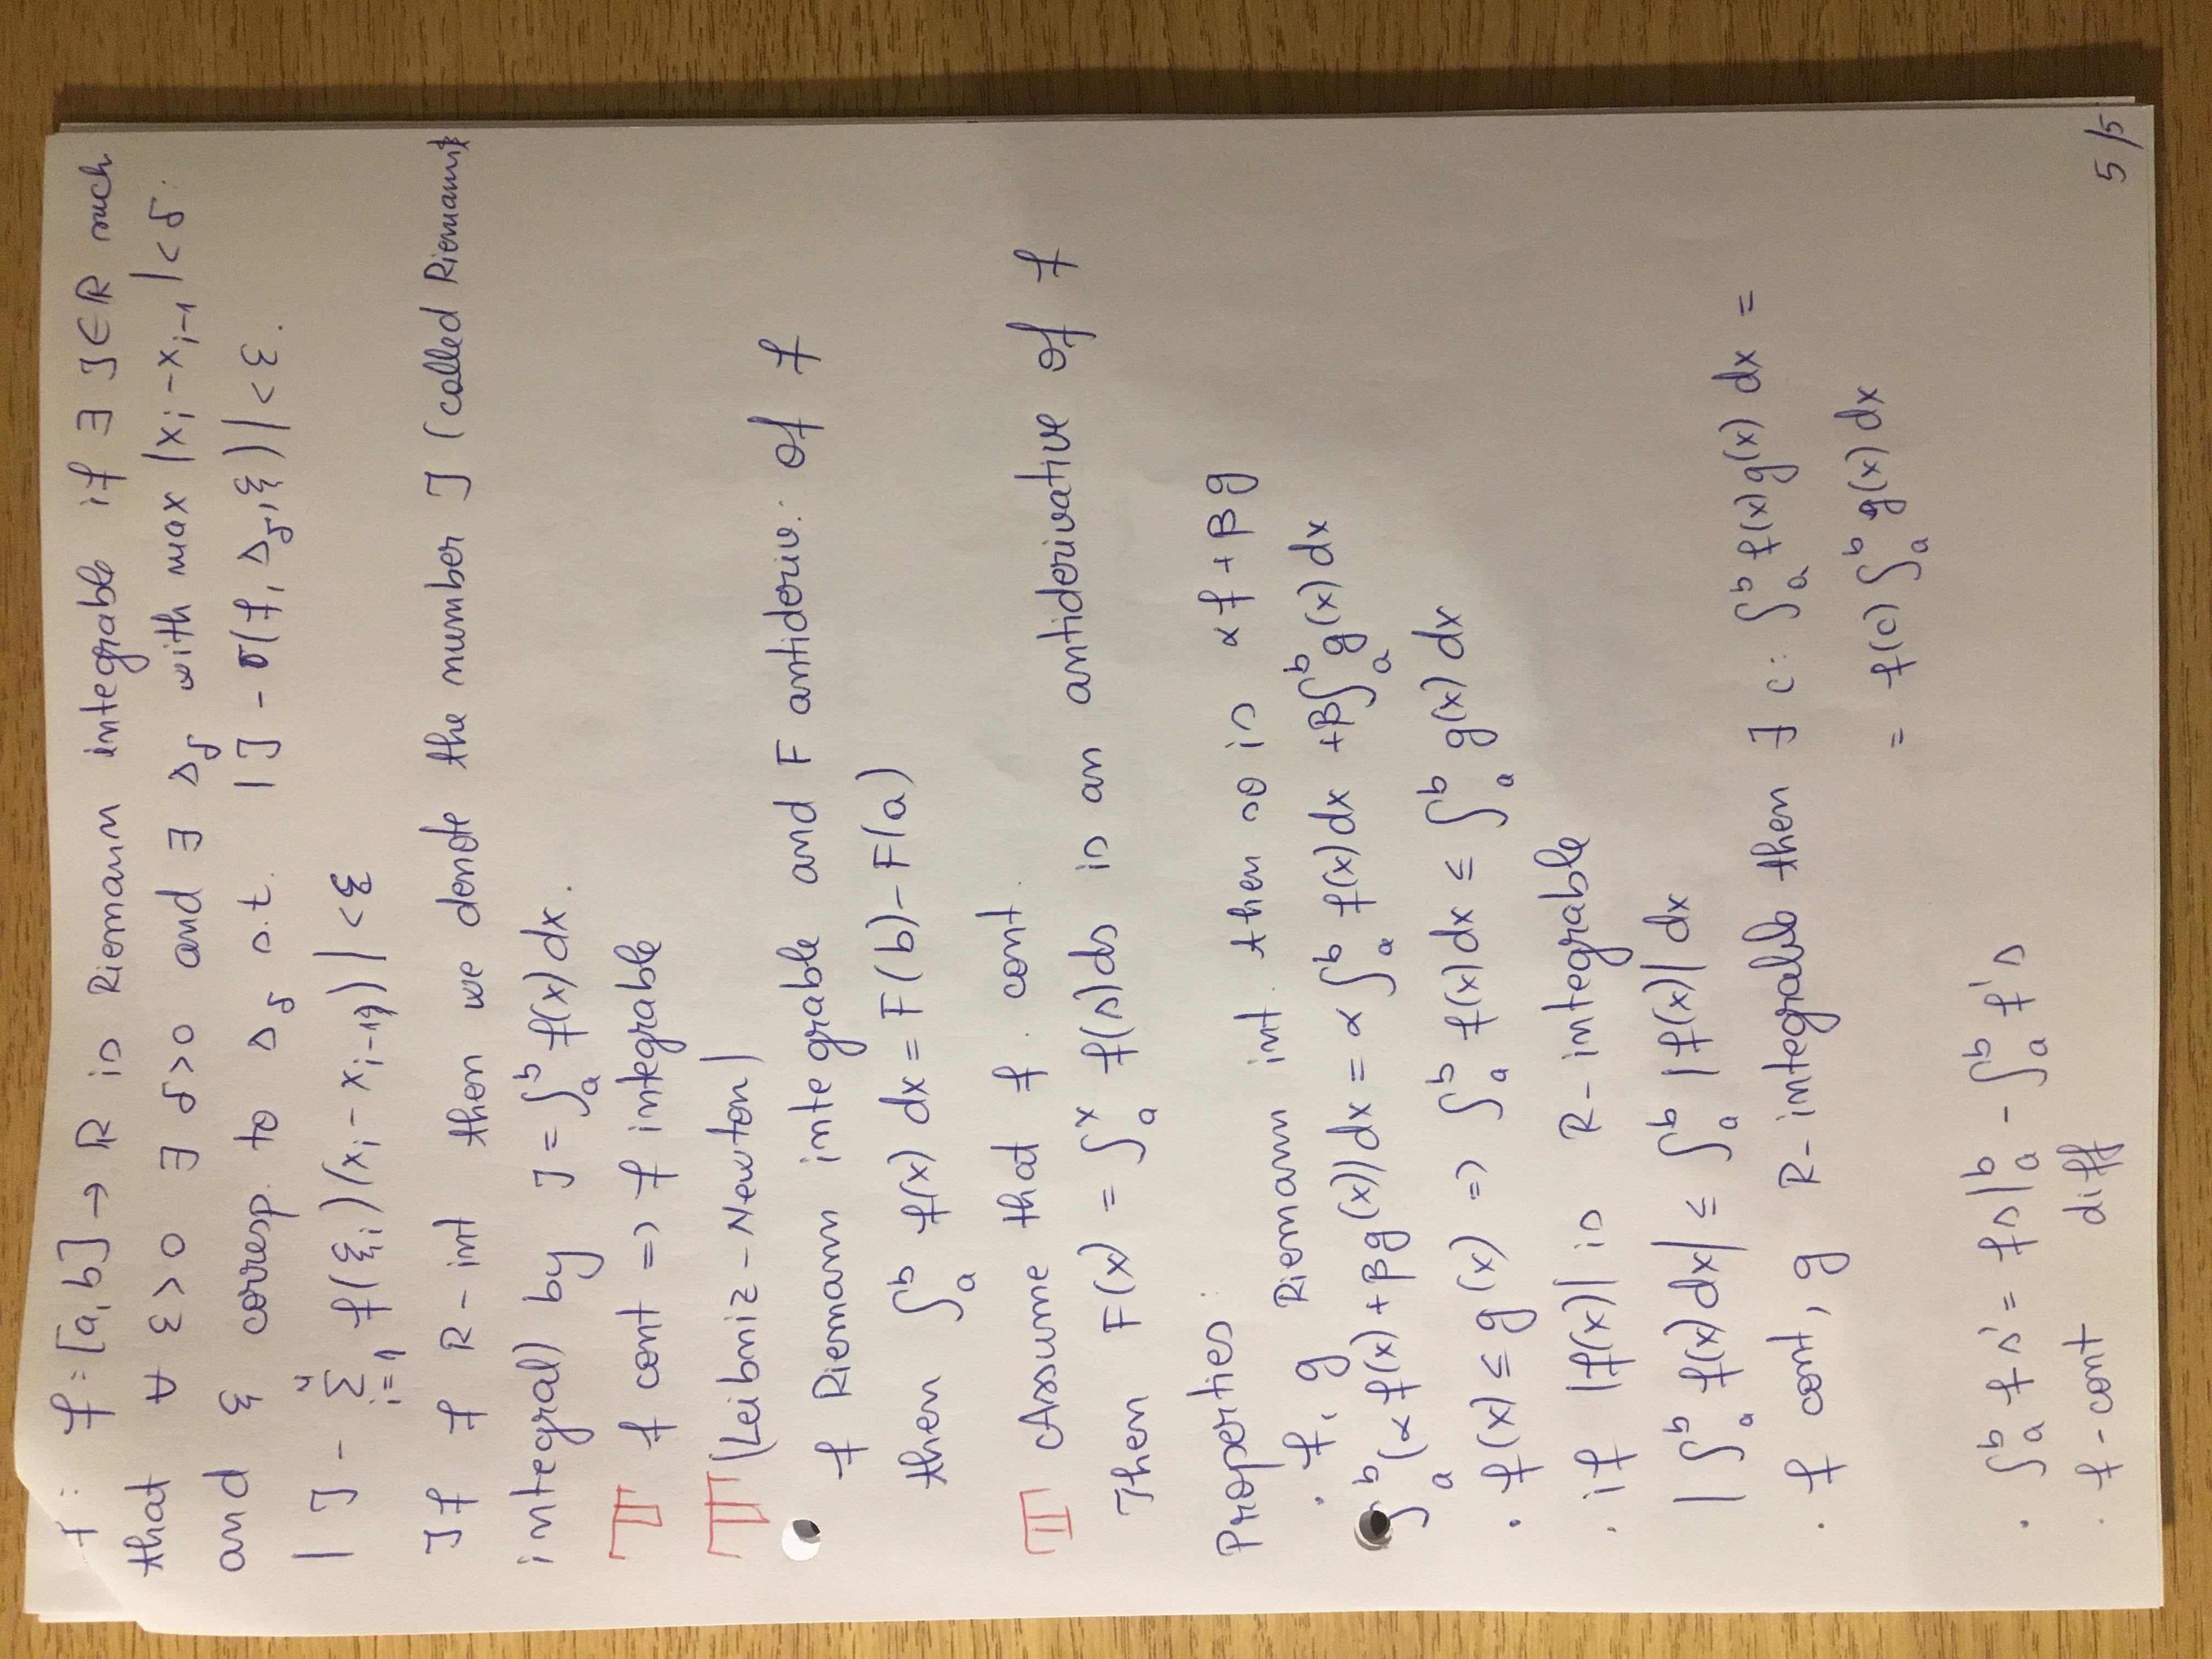 f: [a,b] → R is Riemann integrable if ∃ J∈R such
that ∀ ε>0 ∃ δ>0 and ∃ Δ_δ with max |x_i - x_{i-1}| < δ
and ξ corresp. to Δ_δ s.t. |J - σ(f, Δ_δ, ξ)| < ε.
|J - Σ_{i=1}^n f(ξ_i)(x_i - x_{i-1})| < ε
If f R-int then we denote the number J (called Riemann
integral) by J = ∫_a^b f(x) dx.
T f cont => f integrable
T (Leibniz-Newton)
f Riemann integrable and F antideriv. of f
then ∫_a^b f(x) dx = F(b) - F(a)
T Assume that f cont.
Then F(x) = ∫_a^x f(s) ds is an antiderivative of f
Properties
· f, g Riemann int. then so is αf + βg
∫_a^b (αf(x) + βg(x)) dx = α ∫_a^b f(x) dx + β ∫_a^b g(x) dx
· f(x) ≤ g(x) => ∫_a^b f(x) dx ≤ ∫_a^b g(x) dx
· if |f(x)| is R-integrable
|∫_a^b f(x) dx| ≤ ∫_a^b |f(x)| dx
· f cont, g R-integrable then ∃ c: ∫_a^b f(x) g(x) dx =
= f(c) ∫_a^b g(x) dx
· ∫_a^b f s' = f s |_a^b - ∫_a^b f' s
· f - cont diff
5/5